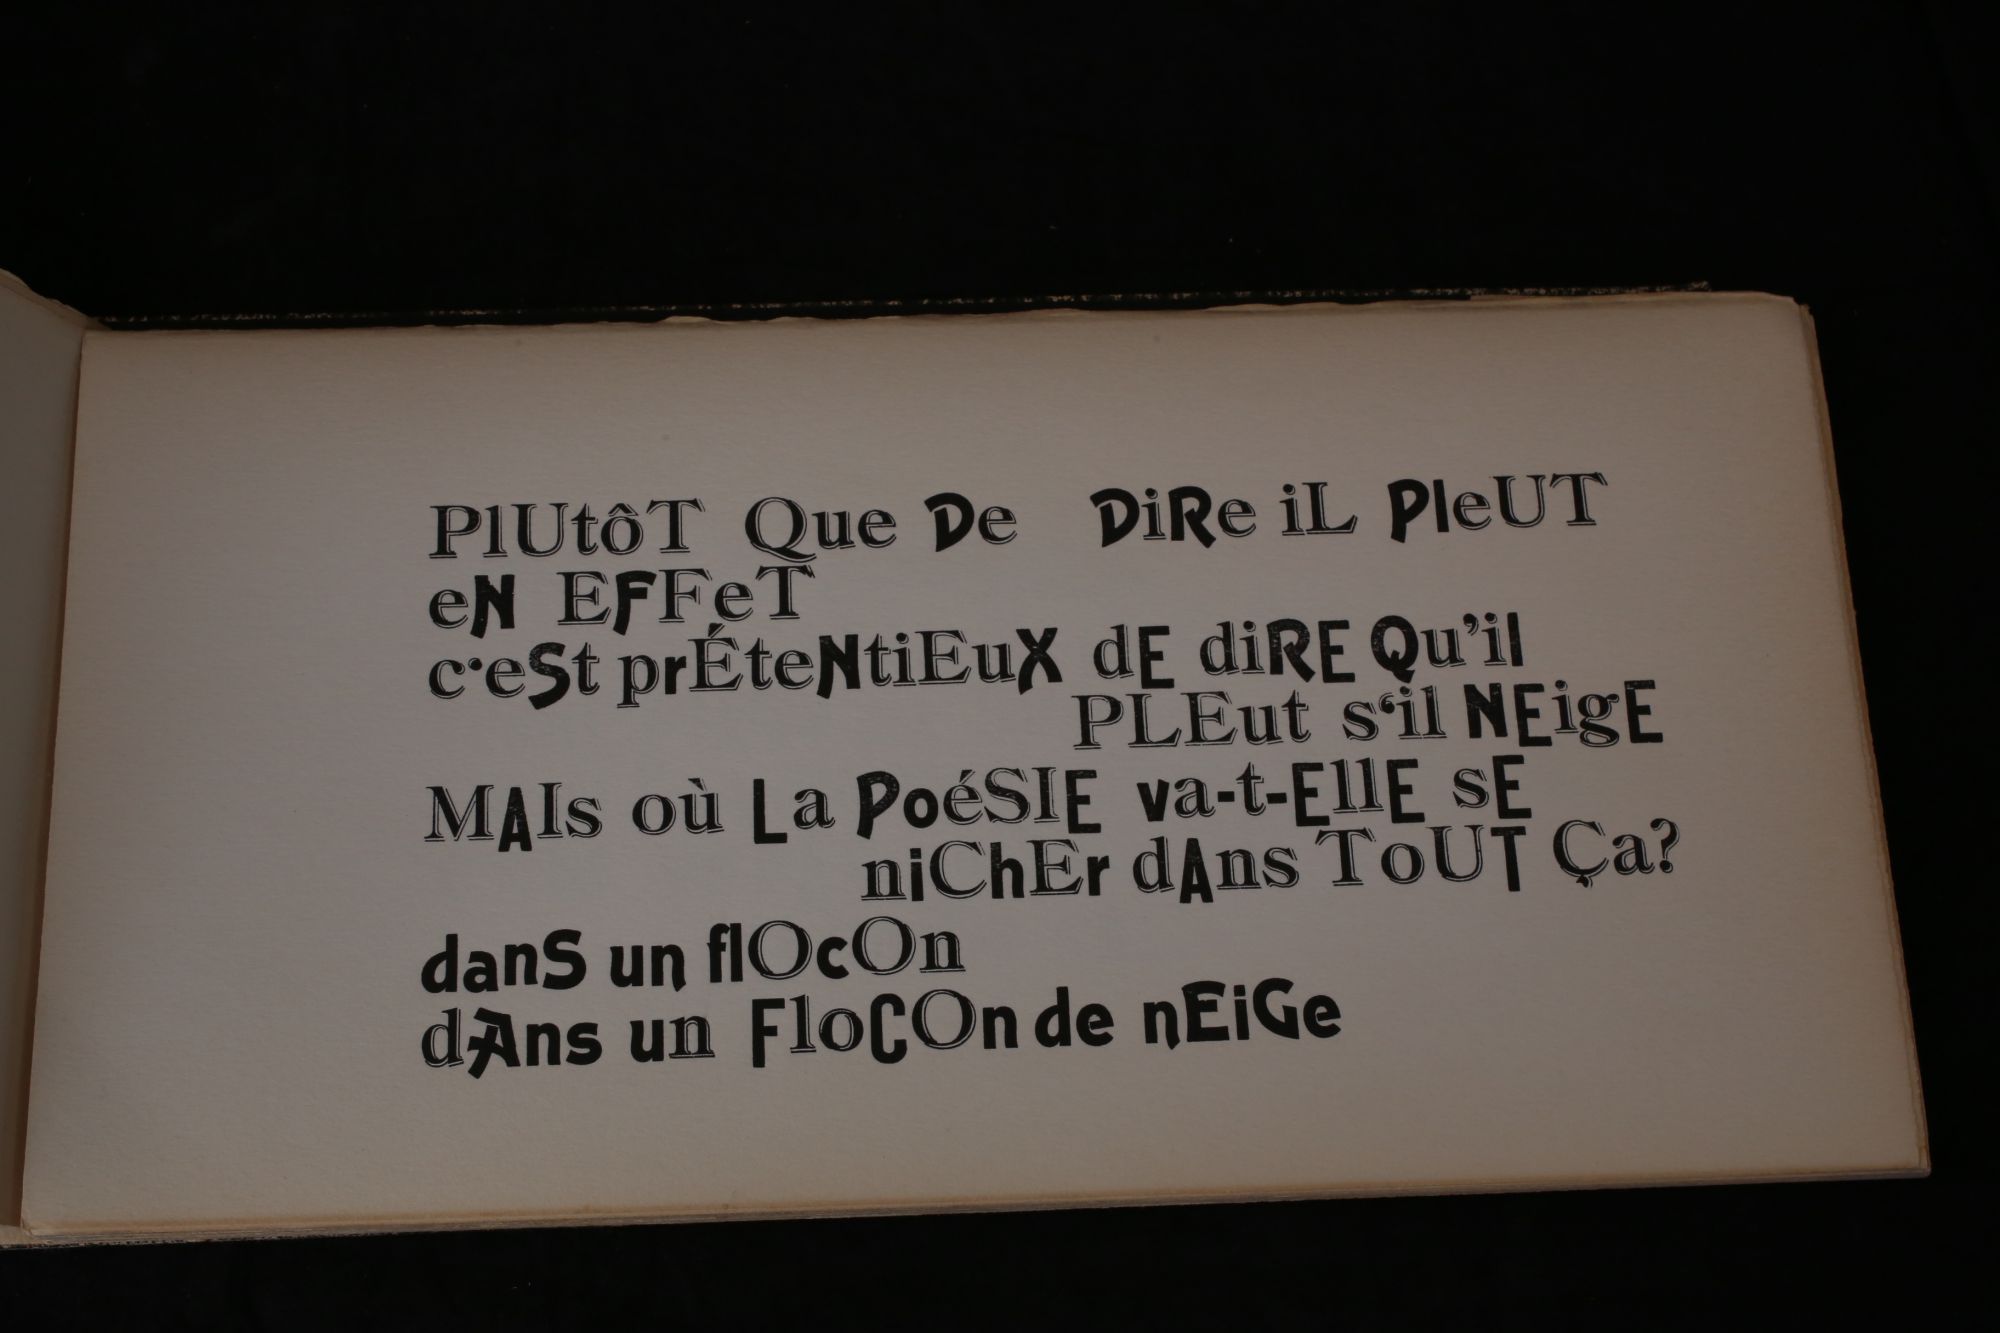 PlUtôT Que De DiRe iL PleUT
eN EFFeT
c‘eSt prÉteNtiEuX dE diRE Qu’il
PLEut s‘il NEigE
MAIs où La PoéSIE va-t-EllE sE
niChEr dAns ToUT Ça?
danS un flOcOn
dAns un FloCOn de nEiGe